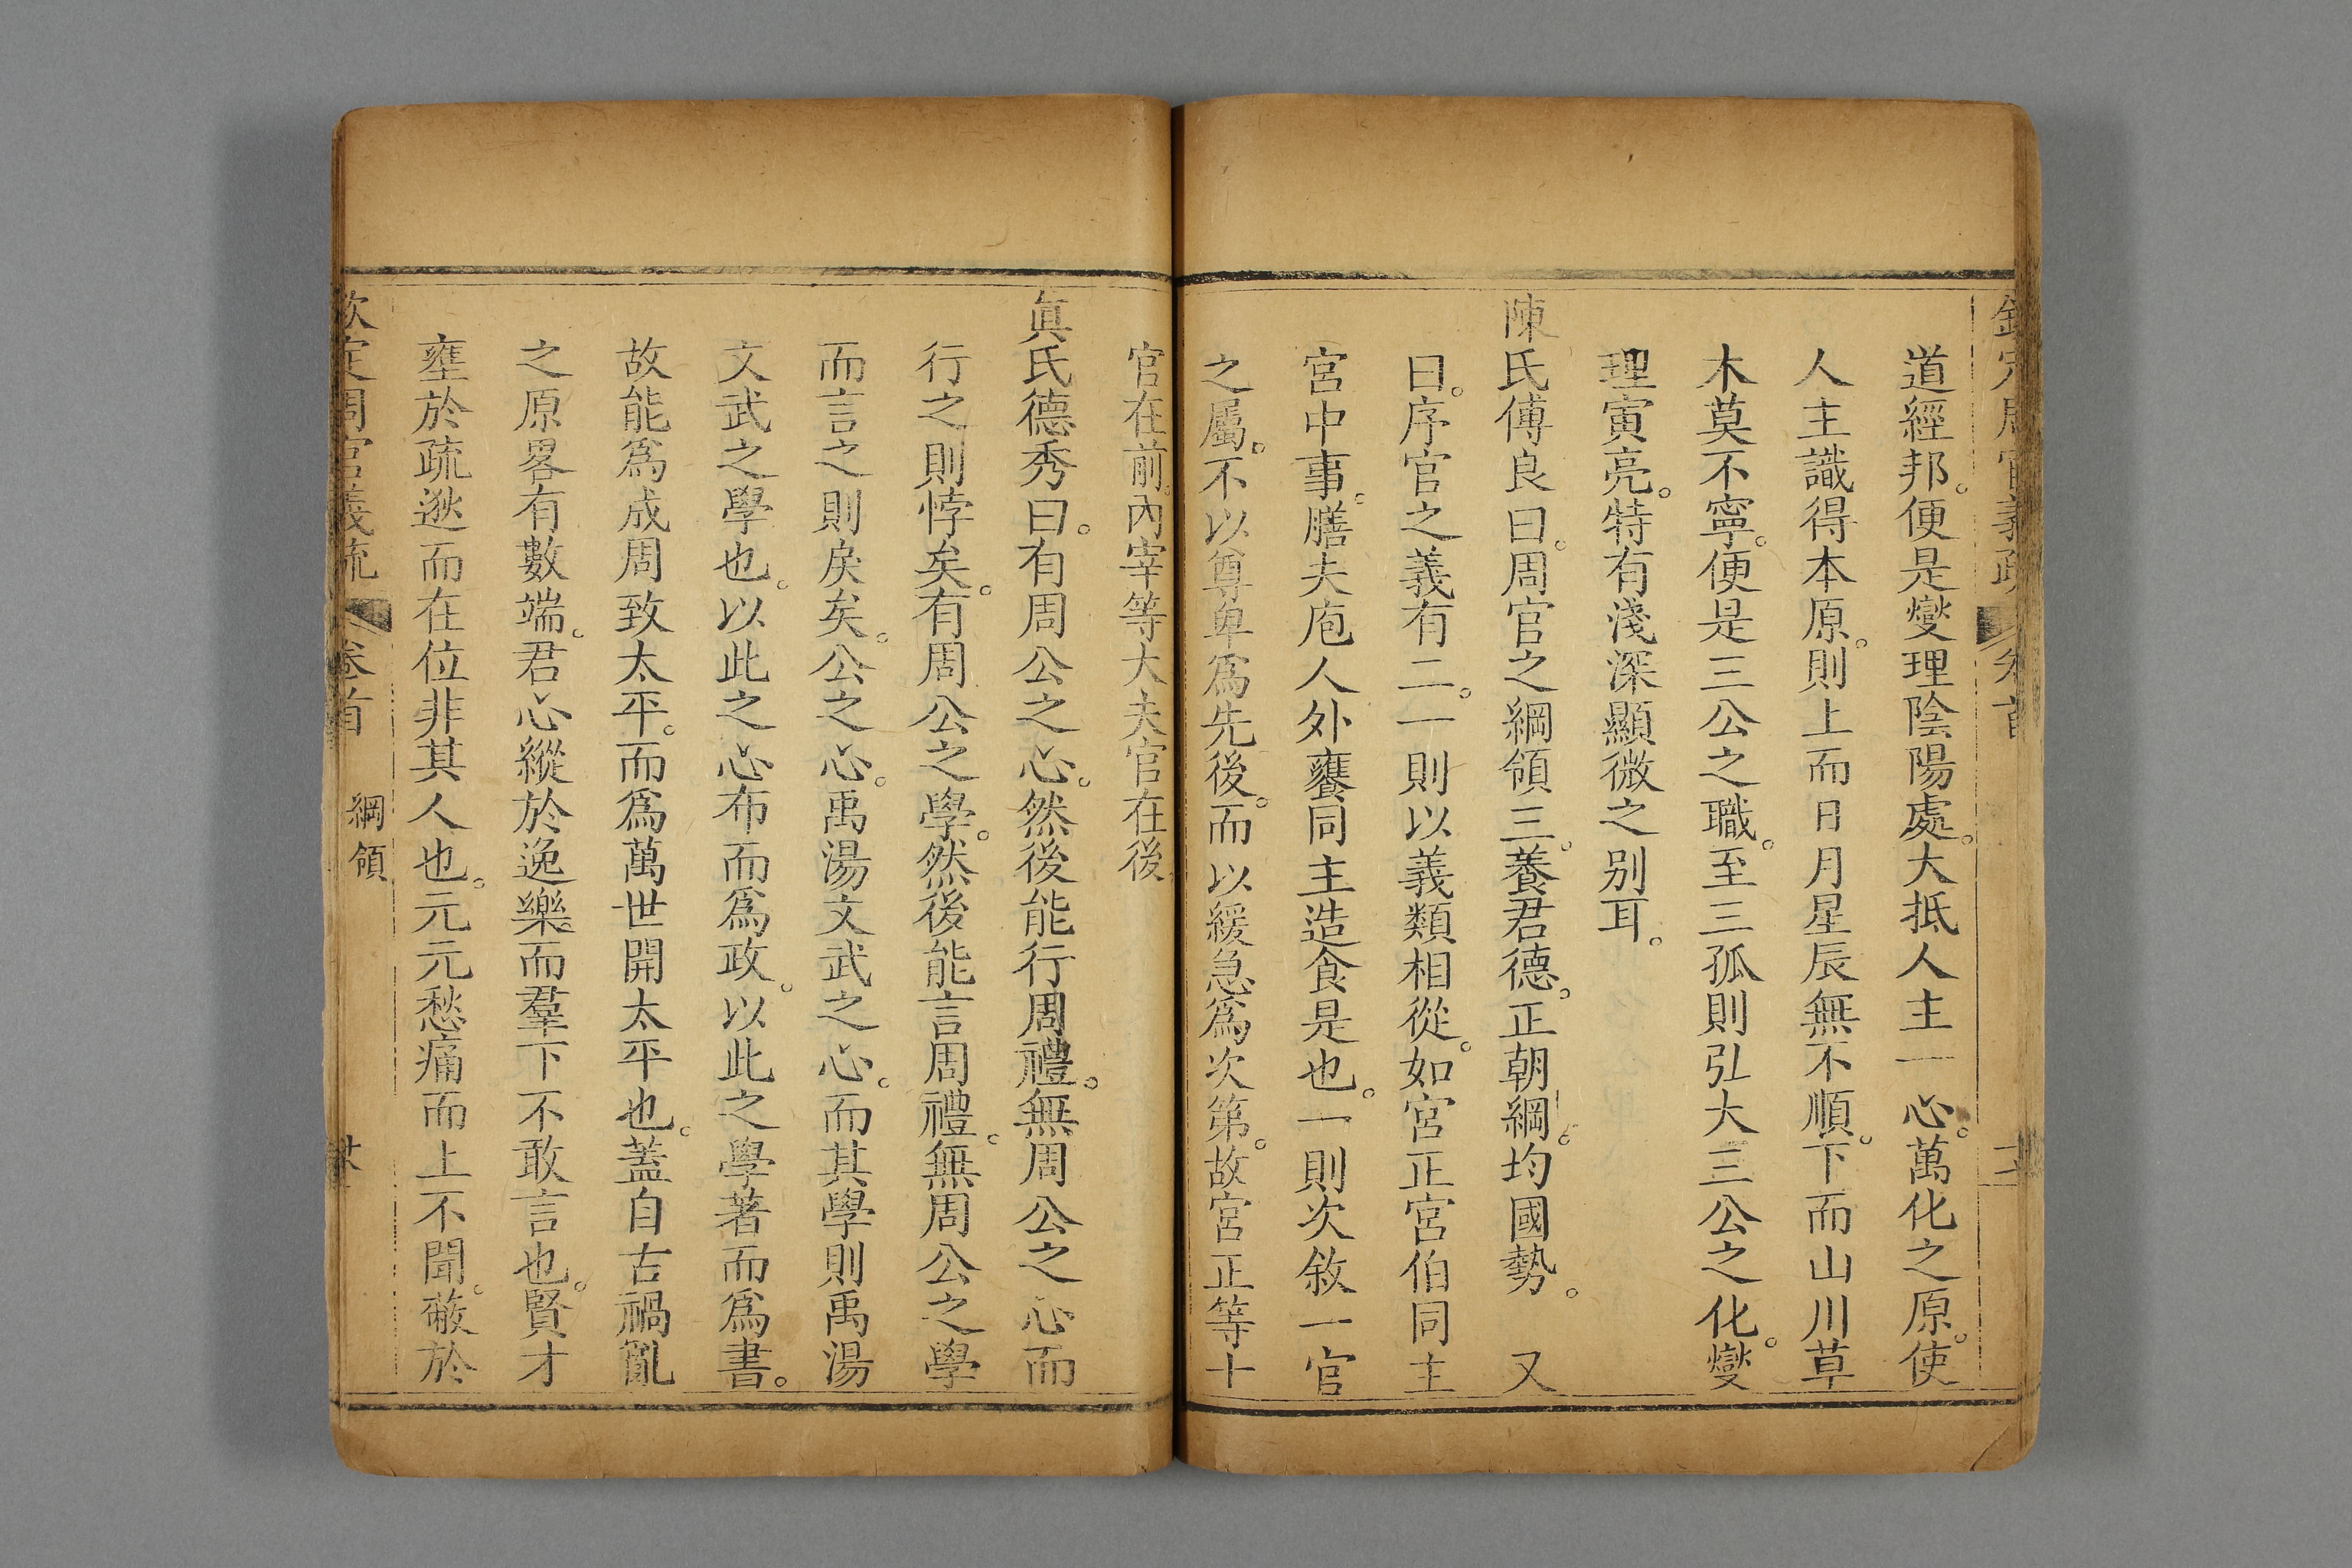 道經邦。便是燮理陰陽處。大抵人主一心。萬化之原。使
人主識得本原。則上而日月星辰無不順。下而山川草
木莫不寧。便是三公之職。至三孤則弘大三公之化。燮
理寅亮。特有淺深顯微之別耳。
陳氏傅良曰。周官之綱領三。養君德。正朝綱。均國勢。 又
曰。序官之義有二。一則以義類相從。如宮正宮伯同主
宮中事。膳夫庖人外饔同主造食是也。一則次敘一官
之屬。不以尊卑爲先後。而以緩急爲次第。故宮正等十
官在前。內宰等大夫官在後。
眞氏德秀曰。有周公之心。然後能行周禮。無周公之心而
行之則悖矣。有周公之學。然後能言周禮。無周公之學
而言之則戾矣。公之心。禹湯文武之心。而其學則禹湯
文武之學也。以此之心布而爲政。以此之學著而爲書。
故能爲成周致太平。而爲萬世開太平也。蓋自古禍亂
之原畧有數端。君心縱於逸樂。而羣下不敢言也。賢才
壅於疏逖而在位非其人也。元元愁痛而上不聞。蔽於
欽定周官義疏 卷首 綱領